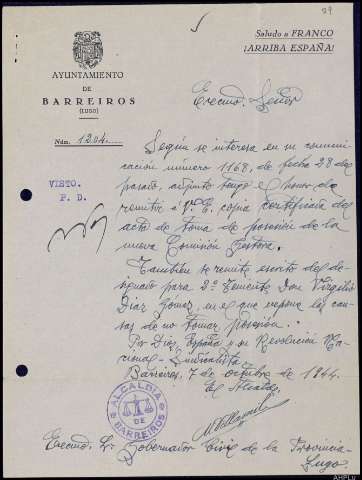 29
Saludo a FRANCO
¡ARRIBA ESPAÑA!
AYUNTAMIENTO
DE
BARREIROS
(LUGO)
Núm. 1204
Excmo. Señor
Según se interesa en su comuni-
cación número 1168, de fecha 28 del
pasado, adjunto tengo el honor de
remitir á V.E. copia certificada del
acta de toma de posesión de la
nueva Comisión Gestora.
VISTO.
P. D.
También se remite escrito del de-
signado para 2º Teniente Don Virgilio
Díaz Gómez, en el que expone las cau-
sas de no tomar posesión.
Por Dios, España y su Revolución Na-
cional-Sindicalista
Barreiros, 7 de octubre de 1944.
El Alcalde,
ALCALDIA
DE
BARREIROS
Excmo. Sr. Gobernador Civil de la Provincia-
Lugo.
AHPLU